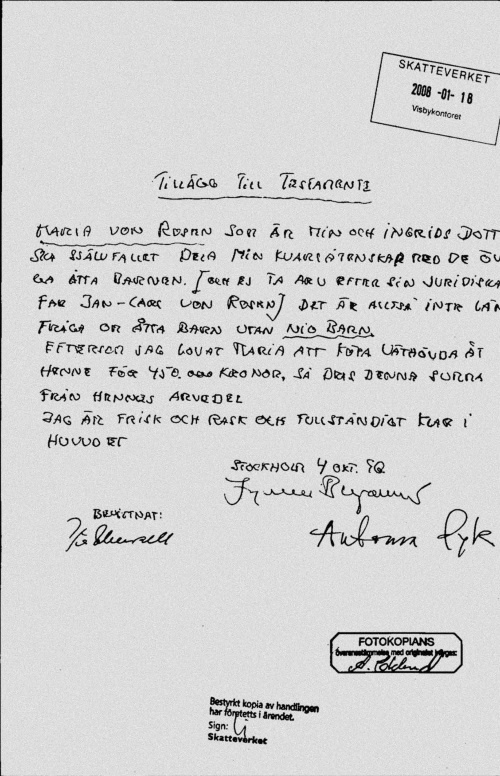 SKATTEVERKET
2008 -01- 18
Visbykontoret
TILLÄGG TILL TESTAMENTE
MARIA VON ROSEN SOM ÄR MIN OCH INGRIDS DOTT
SKA SJÄLVFALLET DELA MIN KVARLÅTENSKAP MED DE ÖV
GA ÅTTA BARNEN. [OCH EJ TA ARV EFTER SIN JURIDISKA
FAR JAN-CARL VON ROSEN] DET ÄR ALLTSÅ INTE LÄN
FRÅGA OM ÅTTA BARN UTAN NIO BARN.
EFTERSOM JAG LOVAT MARIA ATT KÖPA ÅT
HENNE FÖR 450.000 KRONOR, SÅ DRAS DENNA SUMMA
FRÅN HENNES ARVEDEL
JAG ÄR FRISK OCH RASK OCH FULLSTÄNDIGT KLAR I
HUVUDET
STOCKHOLM 4 OKT.
BEVITTNAT:
FOTOKOPIANS
överensstämmelse med originalet intygas:
Bestyrkt kopia av handlingen
har företetts i ärendet.
Sign:
Skatteverket